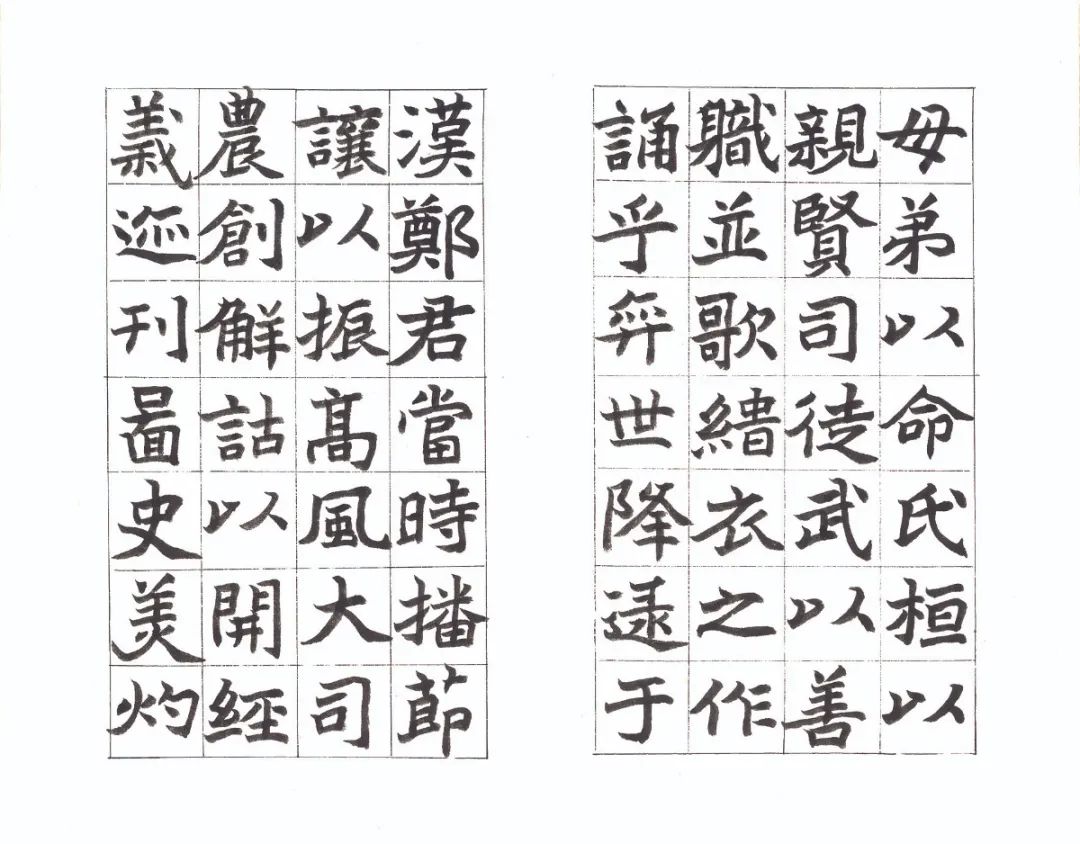 母弟以命氏桓以
親賢司徒武以善
職並歌緇衣之作
誦乎弈世降逮于
漢鄭君當時播節
讓以振高風大司
農創解詁以開經
義迹刊圖史美灼